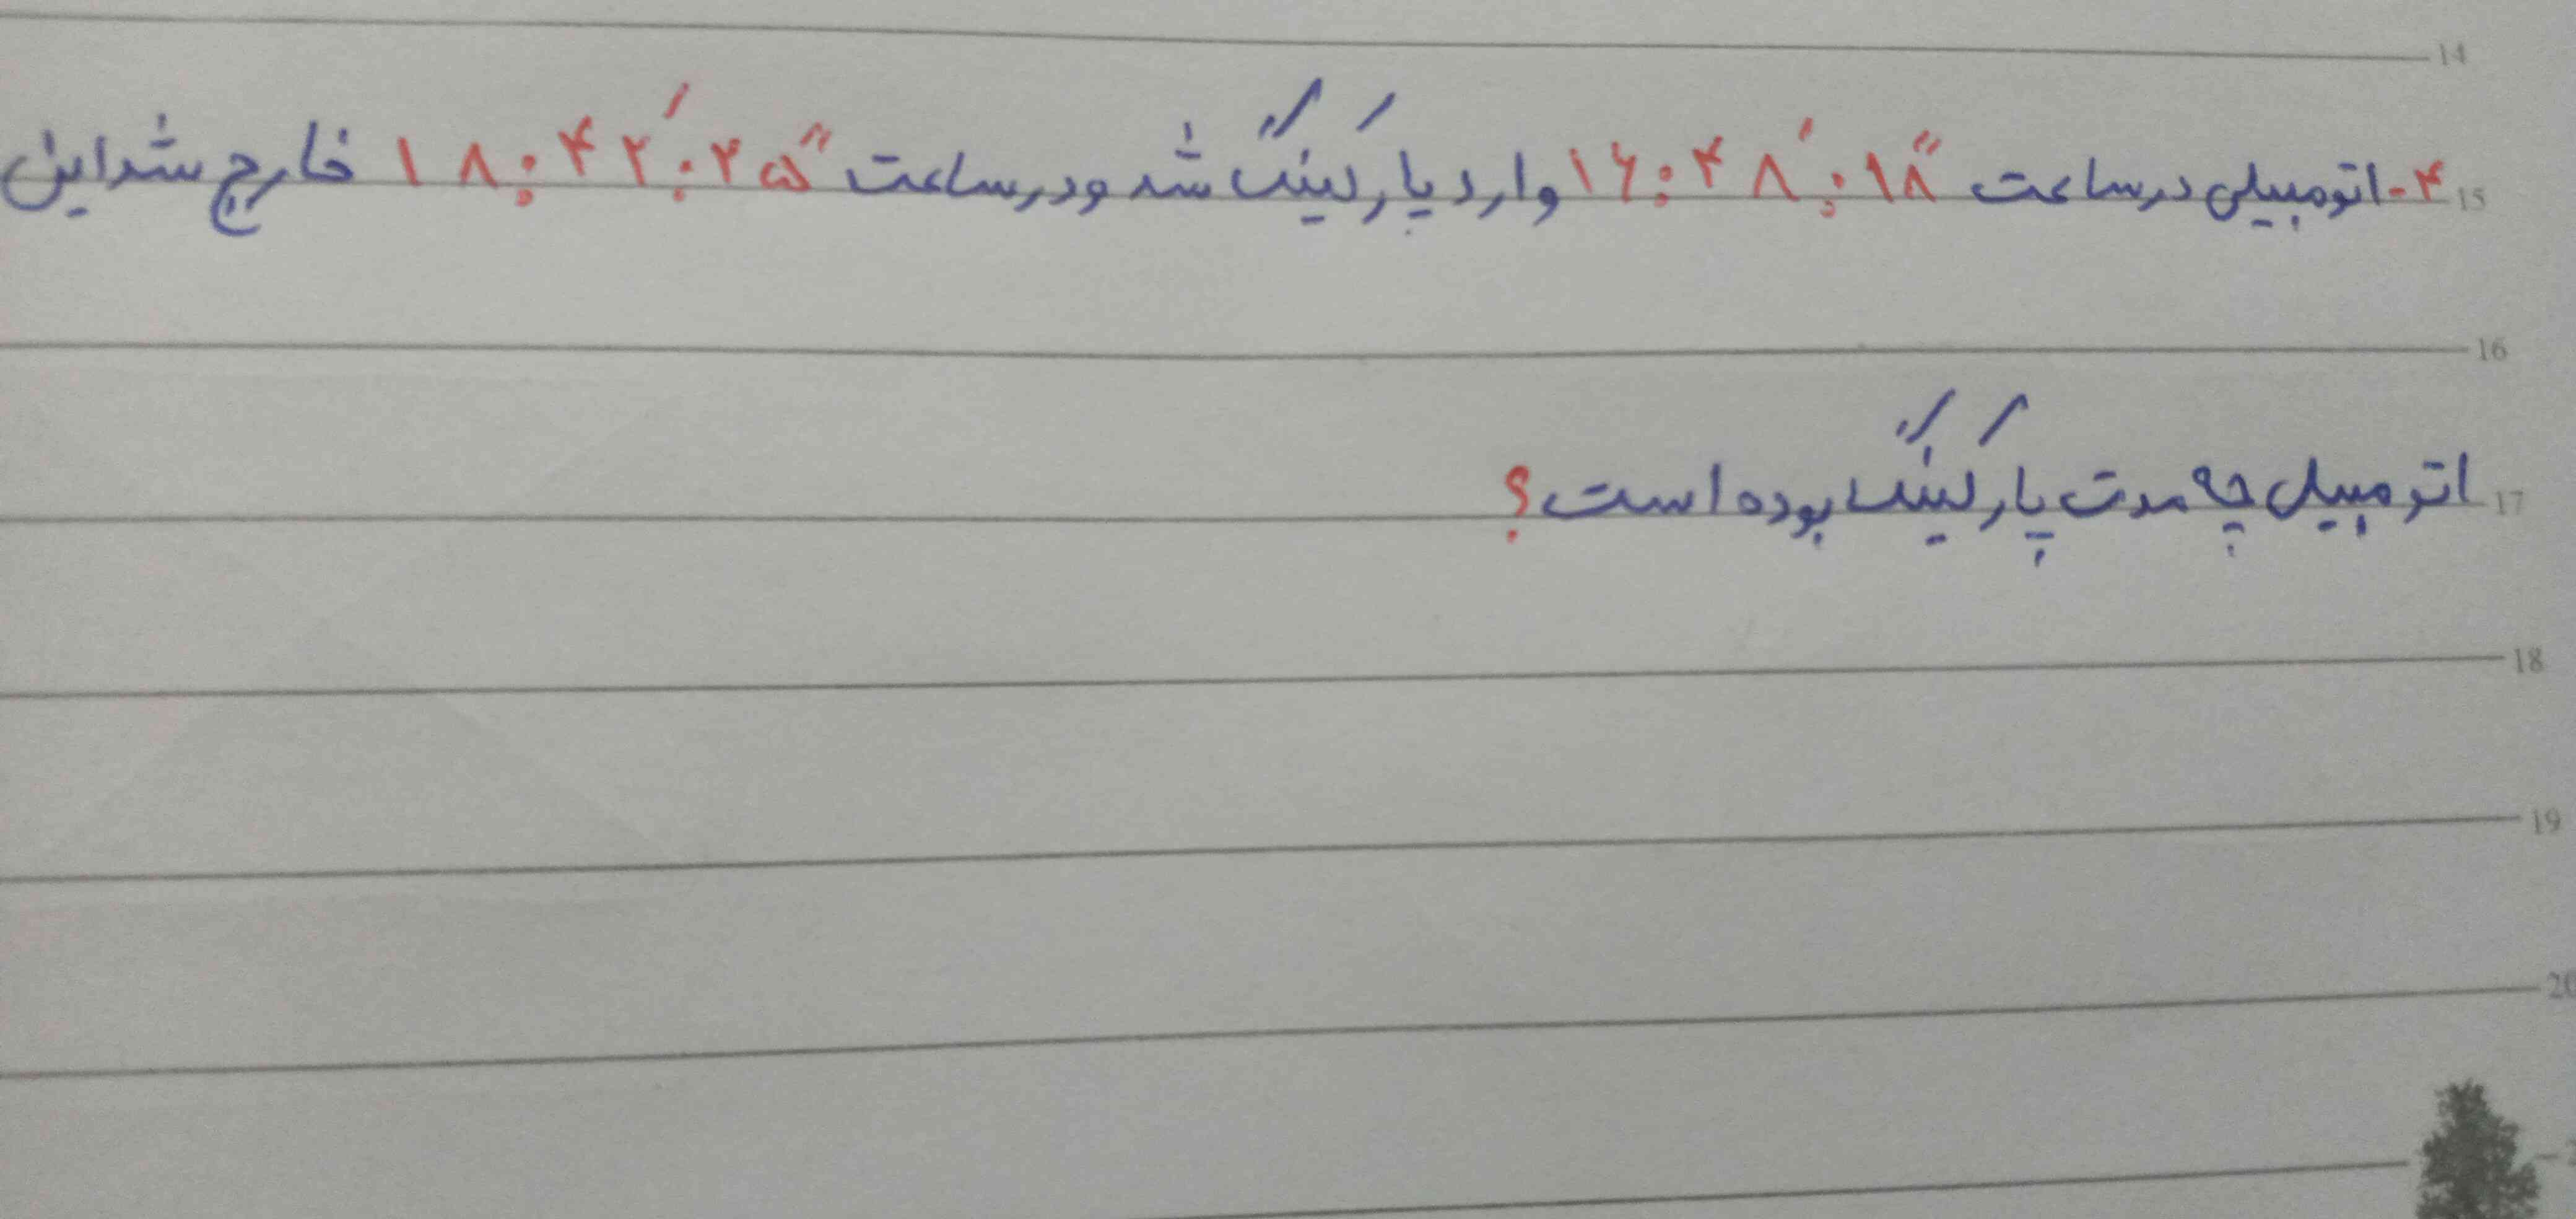 14
15 ۴-اتومبیلی در ساعت ۱۶:۴۸′:۱۸″ وارد پارکینگ شد و در ساعت ۱۸:۴۲′:۲۵″ خارج شد این
16
17 اتومبیل چه مدت پارکینگ بوده است؟
18
19
20